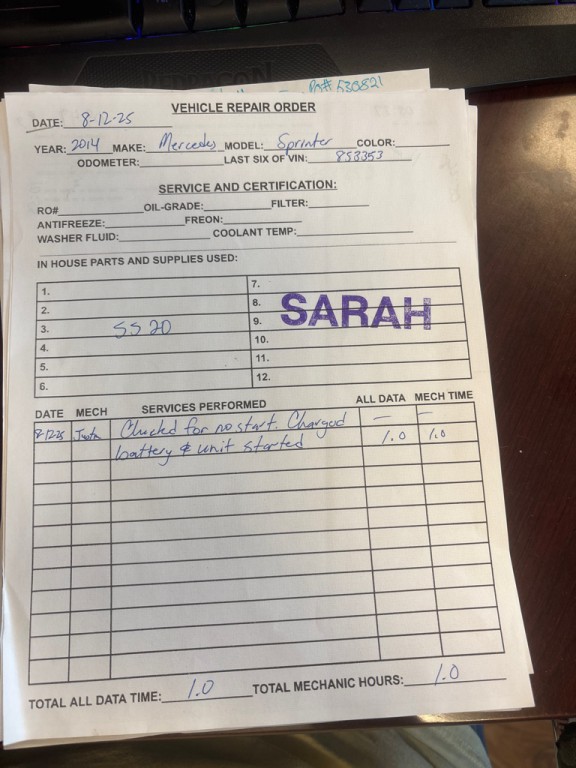 REDRAGON
Part# 530821
VEHICLE REPAIR ORDER
DATE: 8-12-25
YEAR: 2014 MAKE: Mercedes MODEL: Sprinter COLOR:
ODOMETER: LAST SIX OF VIN: 853353
SERVICE AND CERTIFICATION:
RO# OIL-GRADE: FILTER:
ANTIFREEZE: FREON:
WASHER FLUID: COOLANT TEMP:
IN HOUSE PARTS AND SUPPLIES USED:
1. 7.
2. 8.
3. SS20 9. SARAH
4. 10.
5. 11.
6. 12.
DATE MECH SERVICES PERFORMED ALL DATA MECH TIME
8-12-25 Checked for no start. Charged — —
battery & unit started 1.0 1.0
TOTAL ALL DATA TIME: 1.0 TOTAL MECHANIC HOURS: 1.0